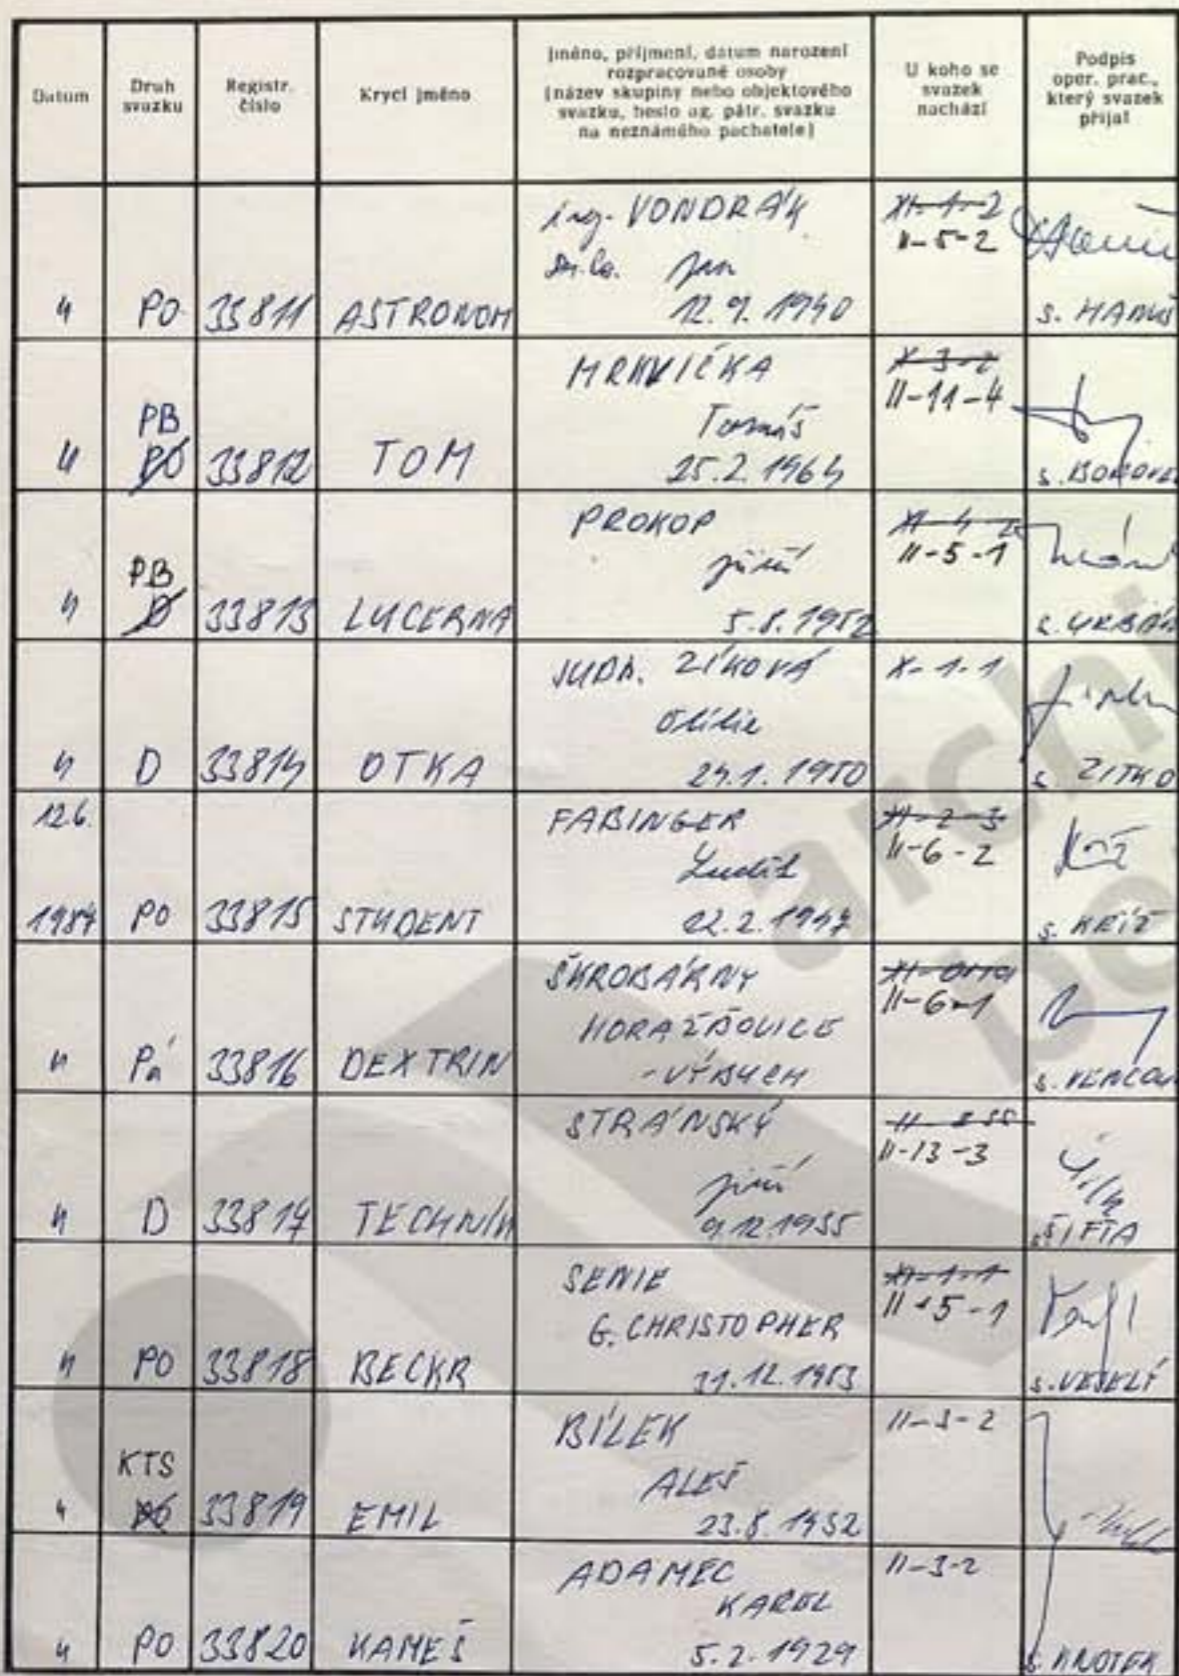 Datum
Druh
svazku
Registr.
číslo
Krycí jméno
Jméno, příjmení, datum narození
rozpracované osoby
(název skupiny nebo objektového
svazku, heslo ag. pátr. svazku
na neznámého pachatele)
U koho se
svazek
nachází
Podpis
oper. prac.,
který svazek
přijal
" PO 33811 ASTRONOM
ing. VONDRÁK
Jan
12. 9. 1940
XI-1-2
II-5-2
s. HANUŠ
" PB
PO 33812 TOM
MRKVIČKA
Tomáš
25. 2. 1964
X-3-2
II-11-4
" PB
D 33813 LUCERNA
PROKOP
Jiří
5. 8. 1952
II-5-1
s. URBÁN
" D 33814 OTKA
JUDR. ZÍKOVÁ
Otílie
24. 1. 1950
X-1-1
s. ZITKO
12.6.
1987 PO 33815 STUDENT
FABINGER
Luděk
22. 2. 1947
XI-2-3
II-6-2
s. KŘÍŽ
" Pá 33816 DEXTRIN
ŠKROBÁRNY
HORAŽĎOVICE
- VÝBUCH
II-6-1
" D 33817 TECHNIK
STRÁNSKÝ
Jiří
9. 12. 1955
II-13-3
s. ŠIFTA
" PO 33818 BECKR
SENIE
G. CHRISTOPHER
31. 12. 1953
XI-1-1
II-5-1
s. VESELÝ
" KTS
33819 EMIL
BÍLEK
ALEŠ
23. 8. 1952
II-3-2
" PO 33820 KAMEŠ
ADAMEC
KAREL
5. 2. 1929
II-3-2
s. KNOTEK